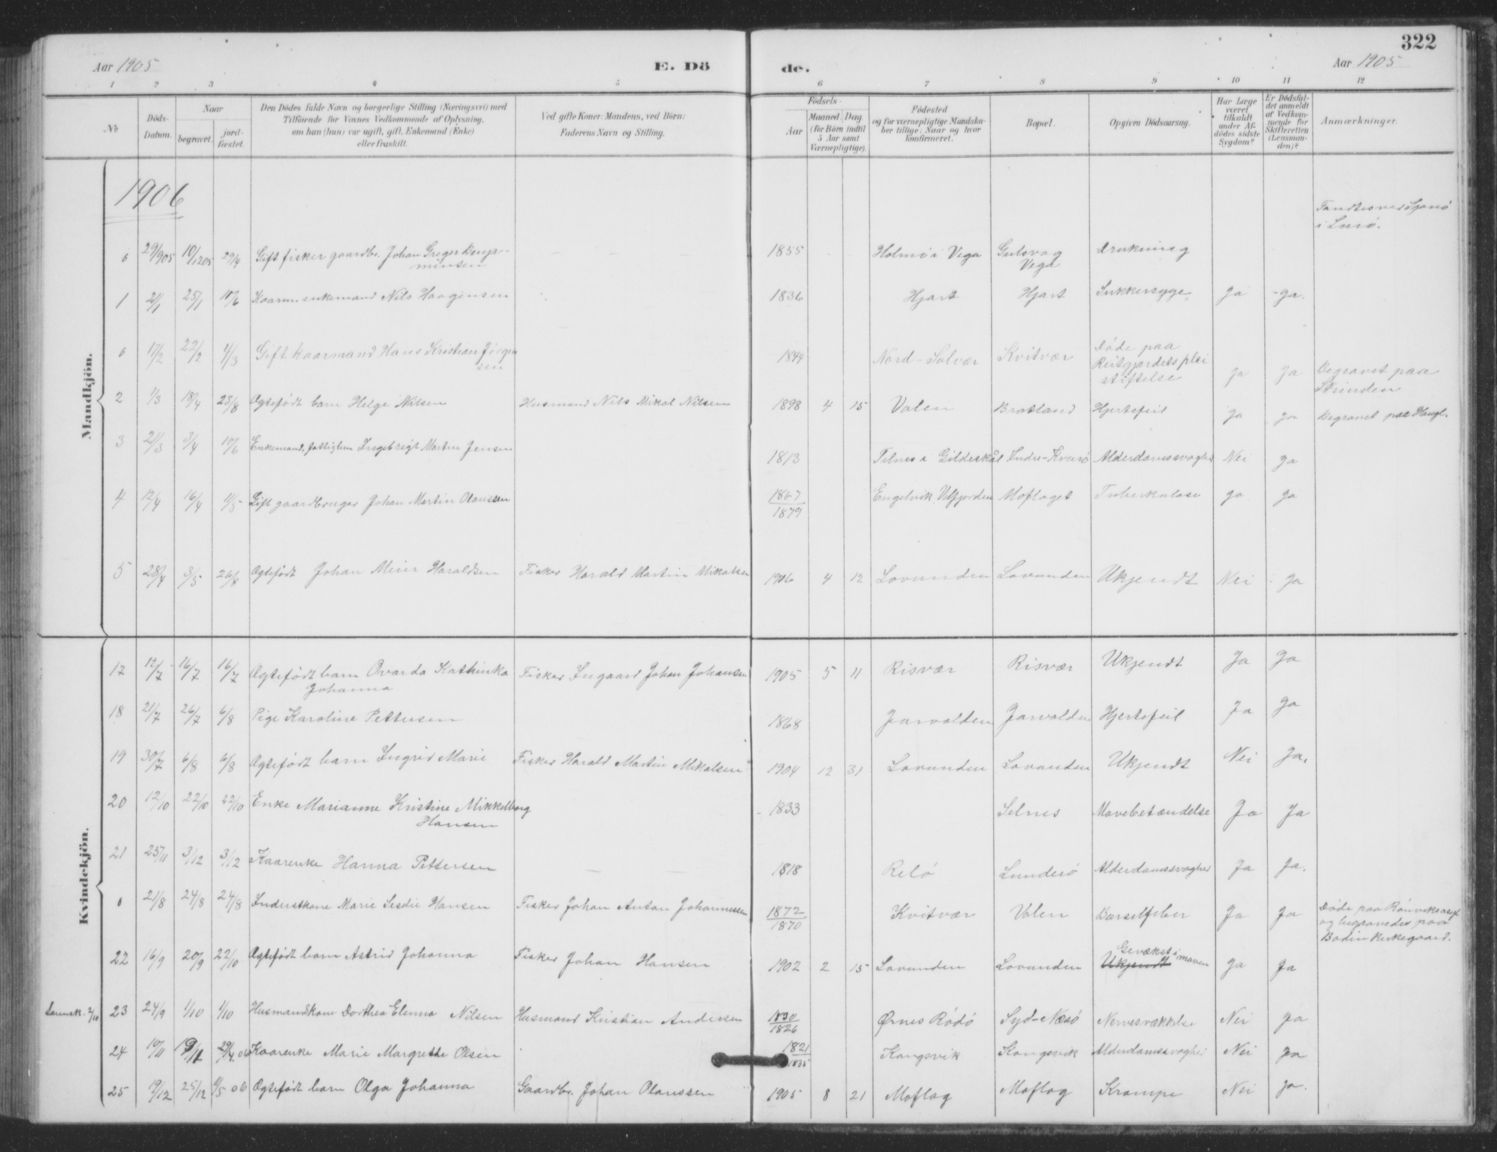 322
Aar 1905
E. Dö
de.
Aar 1905
1 2 3 4 5 6 7 8 9 10 11 12
№
Döds-Datum.
Naar
begravet.
jord-fæstet.
Den Dödes fulde Navn og borgerlige Stilling (Næringsvei) med
Tilföiende for Voxnes Vedkommende af Oplysning,
om han (hun) var ugift, gift, Enkemand (Enke)
eller fraskilt.
Ved gifte Koner: Mandens, ved Börn:
Faderens Navn og Stilling.
Födsels-
Aar
Maaned Dag
(for Börn indtil
5 Aar samt
Værnepligtige).
Födested
og for værnepligtige Mandska-
ber tillige: Naar og hvor
konfirmeret.
Bopæl.
Opgiven Dödsaarsag.
Har Læge
været
tilkaldt
under Af-
dödes sidste
Sygdom?
Er Dödsfal-
det anmeldt
af Vedkom-
mende for
Skifteretten
(Lensman-
den)?
Anmærkninger.
Mandkjön.
1906
i Lurö.
0 29/9 05 10/12 05 29/4 Gift fisker gaardbr. Johan Greger Benja-
minsen
1855 Holmö i Vega Gulsvag
Vega Drukning
1 2/1 25/1 10/6 Kaarm enkemand Nils Haagensen 1836 Hjart Hjart Sukkersyge Ja Ja.
0 17/2 22/2 4/3 Gift kaarmand Hans Kristian Jörgen
sen
1844 Nord-Solvær Kvitvær Döde paa
Reitgjerdets plei
stiftelse Ja Ja Begravet paa
Strinden
2 1/3 18/4 25/8 Ægtefödt barn Helge Nilsen Husmand Nils Mikal Nilsen 1898 4 15 Valen Bratland Hjertefeil Ja Ja Begravet paa
3 21/3 3/4 10/6 Enkemand, fattiglem Ingebrigt Martin Jensen 1813 Selnes i Gildeskål Indre-Kvarö Alderdomssvaghed Nei Ja
4 12/4 16/4 11/5 Gift gaardbruger Johan Martin Olaussen 1867
1879 Engelvik, Ulfjorden Moflaget Tuberkulose Ja Ja
5 28/4 3/5 26/8 Ægtefödt Johan Meier Haraldsen Fisker Harald Martin Mikalsen 1906 4 12 Lovunden Lovunden Ukjendt Nei Ja
Kvindekjön.
17 12/7 16/7 16/7 Ægtefödt barn Ovarda Kathinka
Johanna
Fisker Ingaard Johan Johansen 1905 5 11 Risvær Risvær Ukjendt Ja Ja
18 21/7 26/7 6/8 Pige Karoline Pettersen 1868 Jarvolden Jarvolden Hjertefeil Ja Ja
19 30/7 6/8 6/8 Ægtefödt barn Ingrid Marie Fisker Harald Martin Mikalsen 1904 12 31 Lovunden Lovunden Ukjendt Nei Ja.
20 12/10 22/10 22/10 Enke Marianne Kristine Mikkelborg
Hansen
1833 Selnes Mavebetændelse Ja Ja
21 25/11 3/12 3/12 Kaarenke Hanna Pettersen 1818 Relö Lunderö Alderdomssvaghed Ja Ja.
0 21/8 24/8 24/8 Inderstkone Marie Hansen Fisker Johan Antan Johannessen 1872
1870 Kvitvær Valen Barselfeber Ja Ja Döde paa Rönviks asyl
og begravedes paa
Bodin kirkegaard.
22 16/9 20/9 22/10 Ægtefödt barn Astrid Johanna Fisker Johan Hansen 1902 2 15 Lovunden Lovunden Ukjendt
Gevækst i maven Ja Ja
2/10 23 24/9 1/10 1/10 Husmandkone Dorthea Elenna Nilsen Husmand Kristian Andersen 1830
1826 Ørnes Rödö Syd-Næsö Nervesvækkelse Nei Ja
24 10/11 19/11 29/4 06 Kaarenke Marie Margrethe Olsen 1821
1835 Kongsvik Kongsvik Alderdomssvaghed Nei Ja
25 9/12 25/12 6/5 06 Ægtefödt barn Olga Johanna Gaardbr. Johan Olaussen 1905 8 21 Moflag Moflag Krampe Nei Ja.